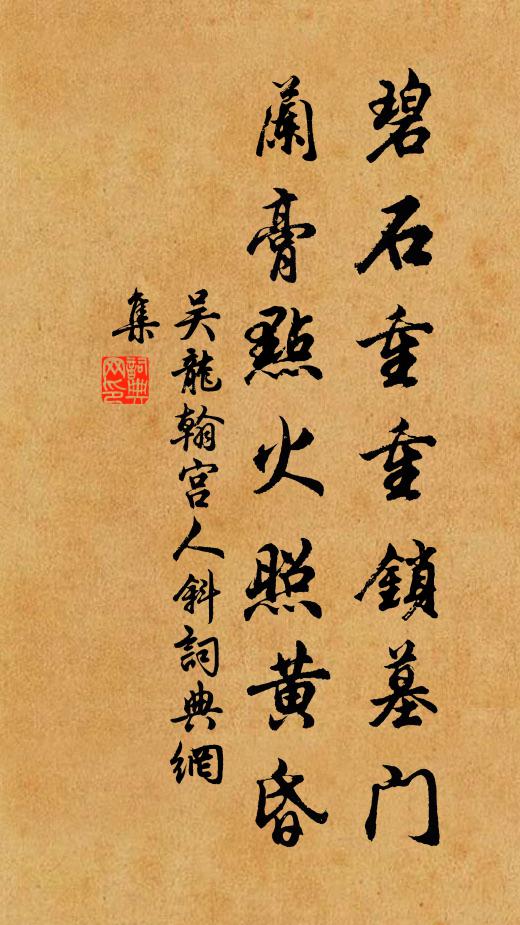 碧石重重鎖墓門
蘭膏點火照黄昏
吴龍翰宫人斜詞典網
集
詞典
网印